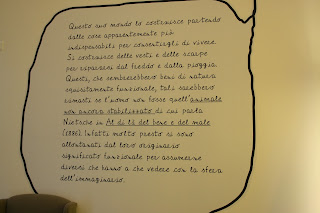 Questo suo mondo lo costruisce partendo
dalle cose apparentemente più
indispensabili per consentirgli di vivere.
Si costruisce delle vesti e delle scarpe
per ripararsi dal freddo e dalla pioggia.
Questi, che sembrerebbero beni di natura
squisitamente funzionale, tali sarebbero
rimasti se l'uomo non fosse quell'animale
non ancora stabilizzato di cui parla
Nietzsche in Al di là del bene e del male
(1886). Infatti molto presto si sono
allontanati dal loro originario
significato funzionale per assumerne
diversi che hanno a che vedere con la sfera
dell'immaginario.